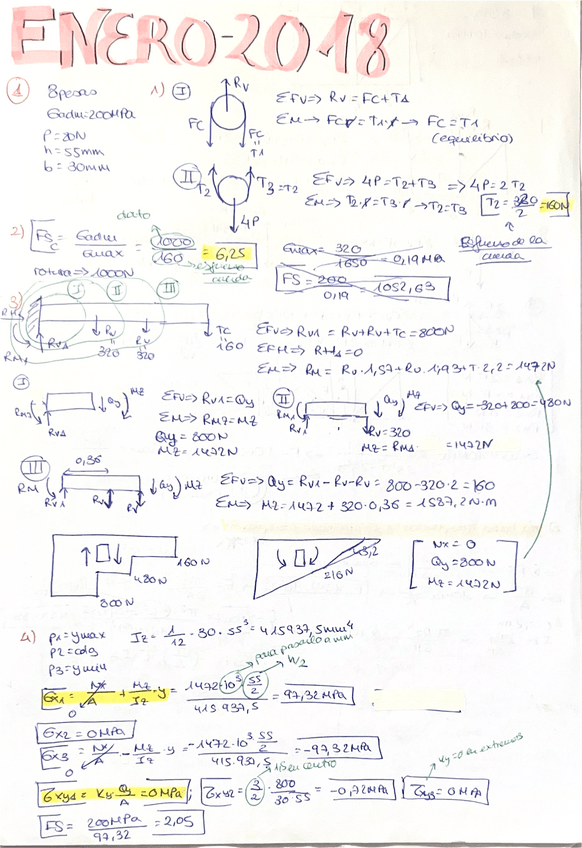 ENERO-2018
1) 8 pesas
σadm=200MPa
P=20N
h=55mm
b=30mm
1) I
RV
FC
FC
T1
ΣFV=> RV = FC+T1
ΣM -> FC·r = T1·r -> FC=T1
(equilibrio)
II
T2
T3=T2
4P
ΣFV=> 4P=T2+T3 => 4P=2T2
ΣM=> T2·r=T3·r -> T2=T3
T2 = 320/2 = 160N
Esfuerzo de la cuerda
2) FSc = σadm/σmax = 1000/160 = 6,25
dato
rotura=>1000N
esfuerzo cuerda
σmax = 320/1650 = 0,19MPa
FS = 200/0,19 = 1052,63
3)
I II III
RHA
RMA
RVA
RV
320
RV
320
TC
160
ΣFV=> RV1 = RV+RV+TC=800N
ΣFH=> RHA=0
ΣM=> RM = RV·1,57+RV·1,93+T·2,2=1472N
I
RM1
RVA
Qy
Mz
ΣFV=> RV1=Qy
ΣM=> RM2=Mz
Qy=800N
Mz=1472N
II
RM1
RV1
Qy
Mz
RV=320
ΣFV=> Qy=-320+800=480N
Mz=RMA =1472N
III
0,36
RM
RV1
RV
RV
Qy
Mz
ΣFV=> Qy=RV1-RV-RV = 800-320·2=160
ΣM=> Mz=1472+320·0,36=1587,2N·m
160N
480N
800N
216N
Nx=0
Qy=800N
Mz=1472N
4) P1=ymax
P2=cdg
P3=ymin
Iz = 1/12 · 30 · 55³ = 415937,5mm⁴
para pasarlo a mm
σx1 = Nx/A + Mz/Iz · y = 1472·10³ 55/2 / 415937,5 = 97,32MPa
0
σx2=0MPa
σx3 = Nx/A - Mz/Iz · y = -1472·10³ 55/2 / 415.937,5 = -97,32MPa
0
1,5 en centro
Ky=0 en extremos
τxy1 = Ky·Qy/A = 0MPa ; τxy2 = 3/2 · 800/30·55 = -0,72MPa ; τxy3=0MPa
FS = 200MPa/97,32 = 2,05